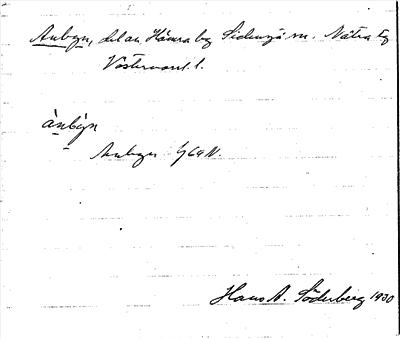 Anbyn, del av Hämra by Sidensjö sn. Nätra tg
Västernorrl. l.
ànbýn
Anbyn GSA N.
Hans A. Söderberg 1930